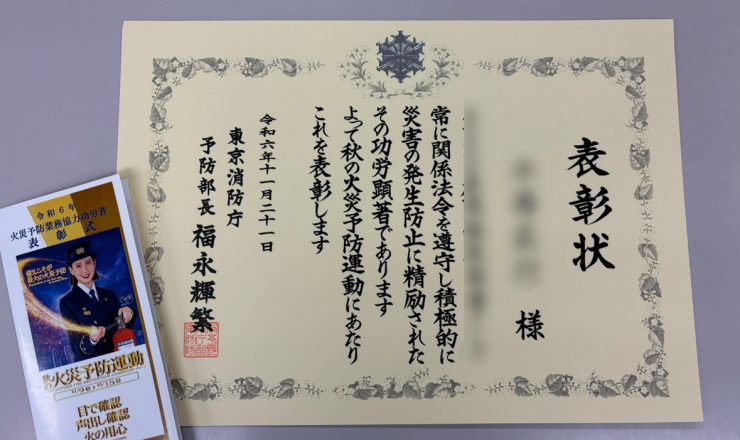 表彰状
様
常に関係法令を遵守し積極的に
災害の発生防止に精励された
その功労顕著であります
よって秋の火災予防運動にあたり
これを表彰します
令和六年十一月二十一日
東京消防庁
予防部長 福永輝繁
令和6年
火災予防業務協力功労者
表彰式
秋の火災予防運動
11/9㊏▶11/15㊎
目で確認
声出し確認
火の用心